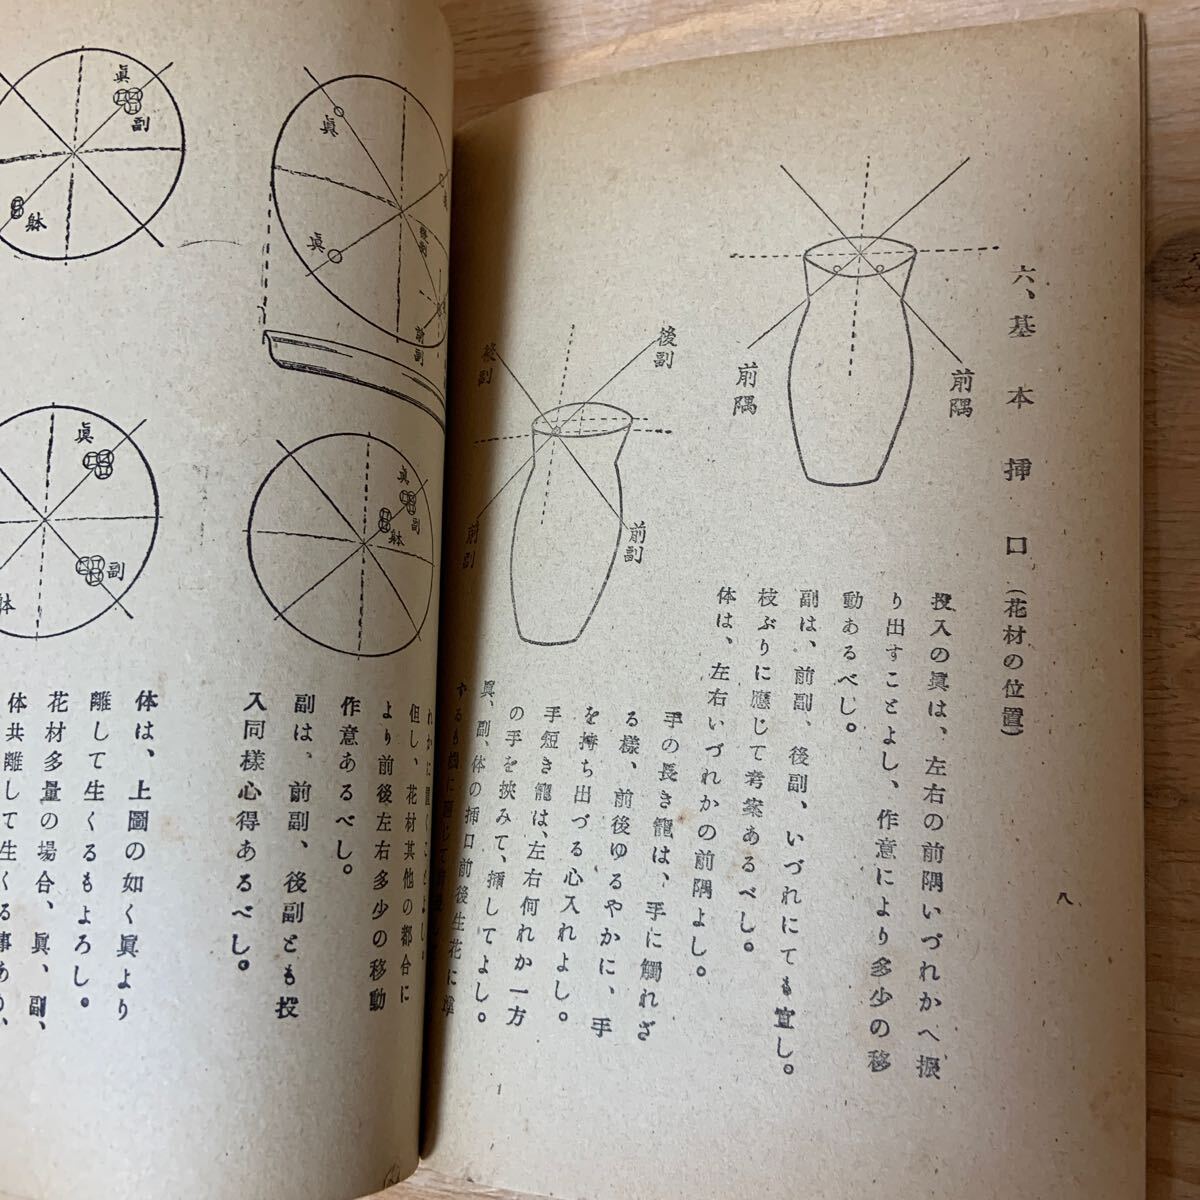 六、基本挿口(花材の位置)
投入の眞は、左右の前隅いづれかへ振
り出すことよし、作意により多少の移
動あるべし。
副は、前副、後副、いづれにても宜し。
枝ぶりに應じて考案あるべし。
体は、左右いづれかの前隅よし。
手の長き籠は、手に觸れざ
る樣、前後ゆるやかに、手
を持ち出づる心入れよし。
手短き籠は、左右何れか一方
の手を挾みて、挿してよし。
眞、副、体の挿口前後生花に準
前隅
前隅
後副
後副
前副
前副
八
但し、花材其他の都合に
より前後左右多少の移動
作意あるべし。
副は、前副、後副とも投
入同樣心得あるべし。
体は、上圖の如く眞より
離して生くるもよろし。
花材多量の場合、眞、副、
体共離して生くる事あり、
眞
副
躰
眞
眞
前副
眞
副
躰
眞
副
躰